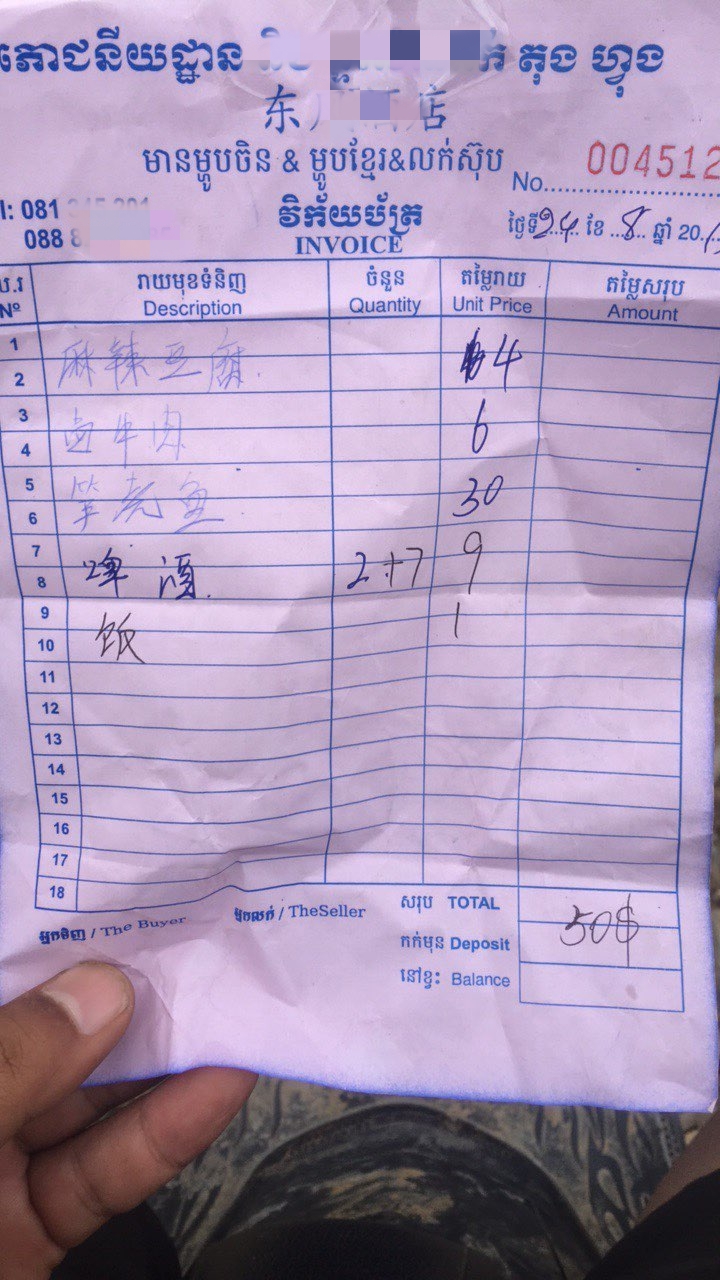 ភោជនីយដ្ឋាន តុង ហ្វុង
东
មានម្ហូបចិន & ម្ហូបខ្មែរ&លក់ស៊ុប
No. 004512
081
088 8
វិក័យប័ត្រ
INVOICE
ថ្ងៃទី 24 ខែ 8 ឆ្នាំ 20
ល.រ រាយមុខទំនិញ ចំនួន តម្លៃរាយ តម្លៃសរុប
Nº Description Quantity Unit Price Amount
1
2 麻辣豆腐. 4
3
4 卤牛肉 6
5
6 笋壳鱼 30
7
8 啤酒. 2+7 9
9
10 饭 1
11
12
13
14
15
16
17
18
អ្នកទិញ / The Buyer អ្នកលក់ / TheSeller
សរុប TOTAL 50$
កក់មុន Deposit
នៅខ្វះ Balance